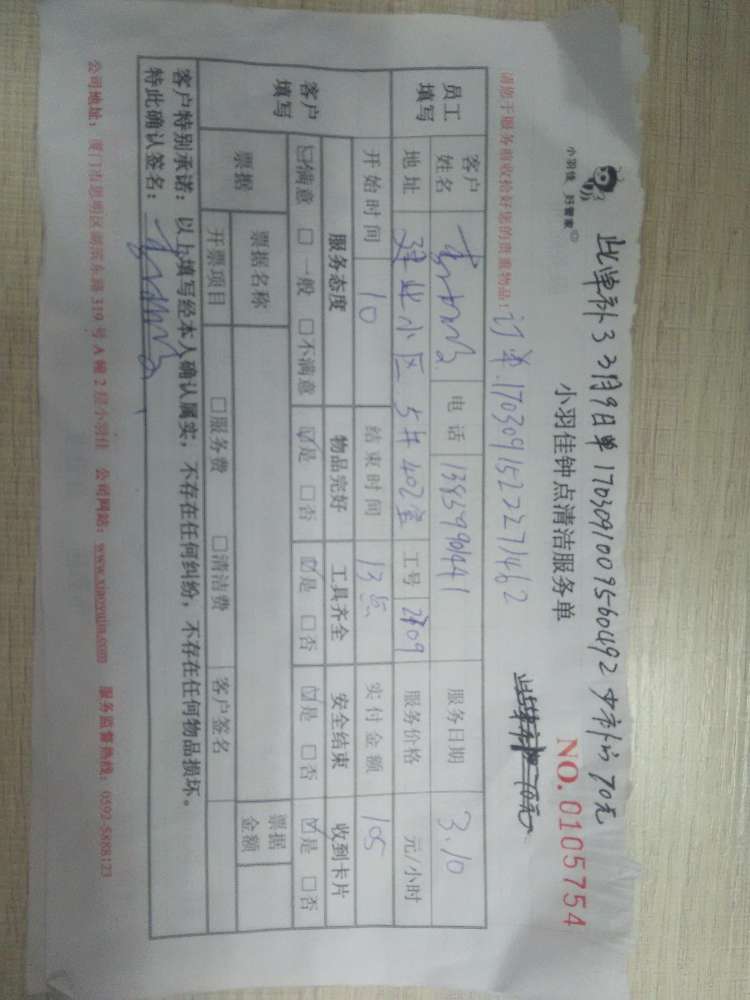 此单补3 3月9日单 1703091009560492 少补的70元
小羽佳 好管家
小羽佳钟点清洁服务单
NO.0105754
订单.1703091522271462
请您于服务前收拾好您的贵重物品!
员工填写
客户姓名 电话 13959901441 服务日期 3.10
地址 建业小区 5# 402室 工号 2709 服务价格 元/小时
开始时间 10 结束时间 13点 实付金额 105
客户填写
服务态度 物品完好 工具齐全 安全结束 收到卡片
☑满意 □一般 □不满意 ☑是 □否 ☑是 □否 ☑是 □否 ☑是 □否
票据 票据名称 票据金额
开票项目 □服务费 □清洁费 客户签名
客户特别承诺:以上填写经本人确认属实,不存在任何纠纷,不存在任何物品损坏。
特此确认签名:
公司地址:厦门市思明区湖滨东路319号A幢2层小羽佳 公司网站:www.xiaoyujia.com 服务监督热线:0592-5888123